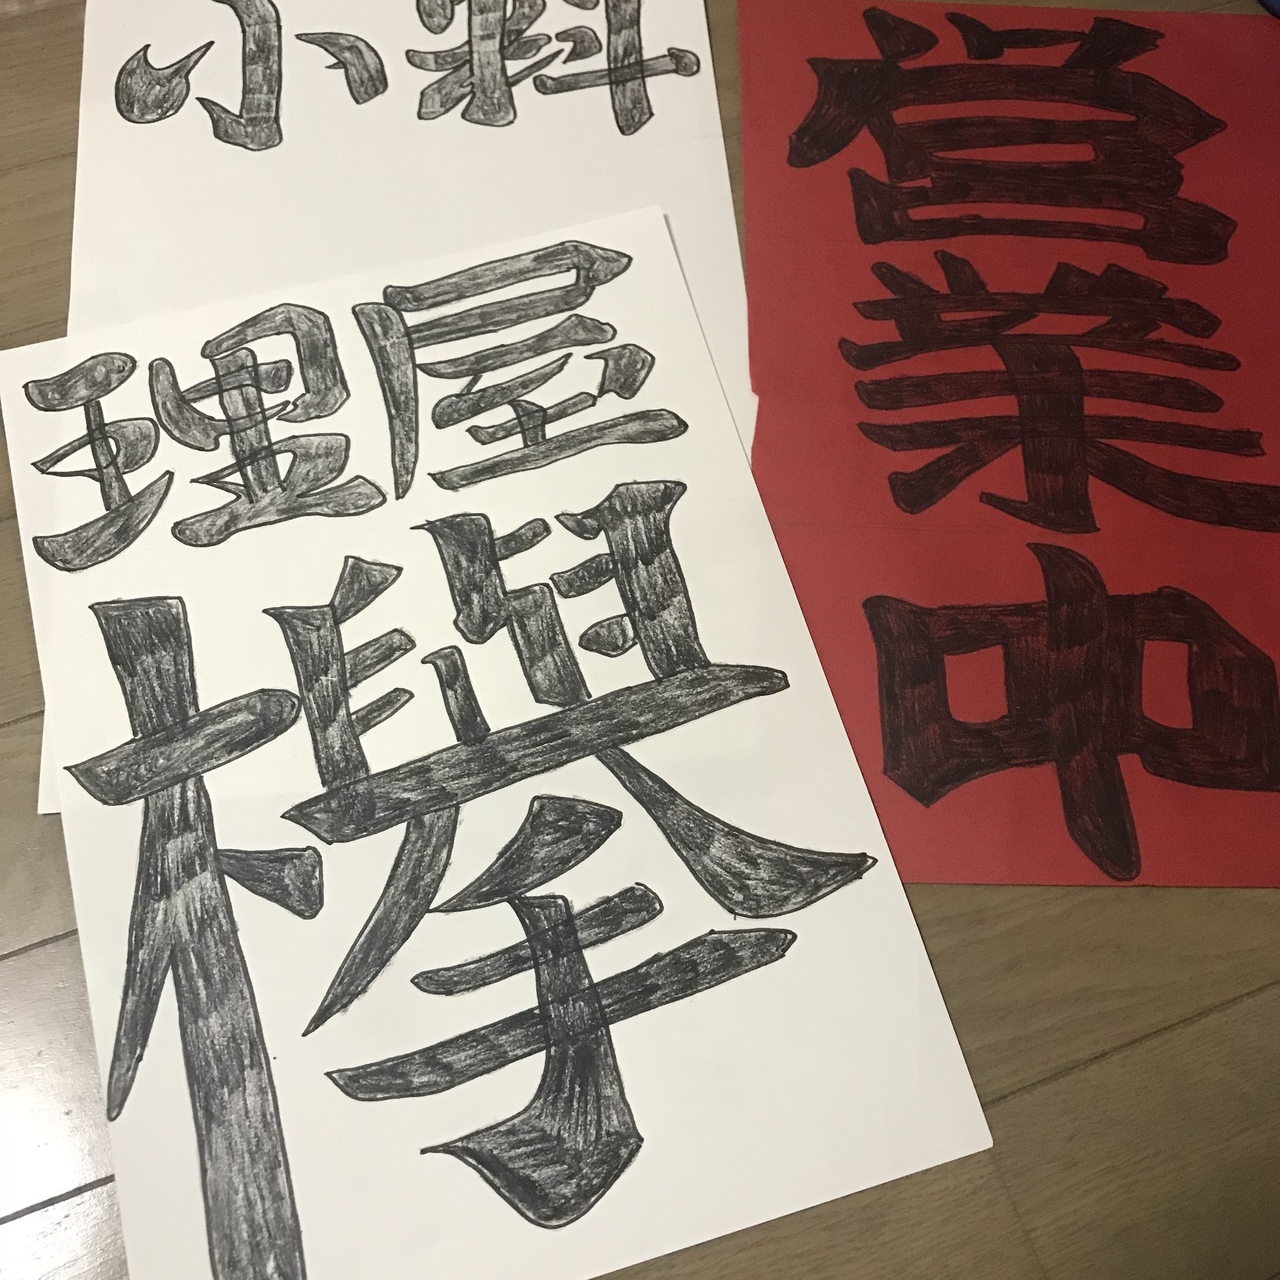 小料
理屋
欅
営業中